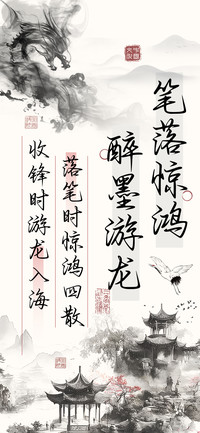 笔落惊鸿
醉墨游龙
落笔时惊鸿四散
收锋时游龙入海